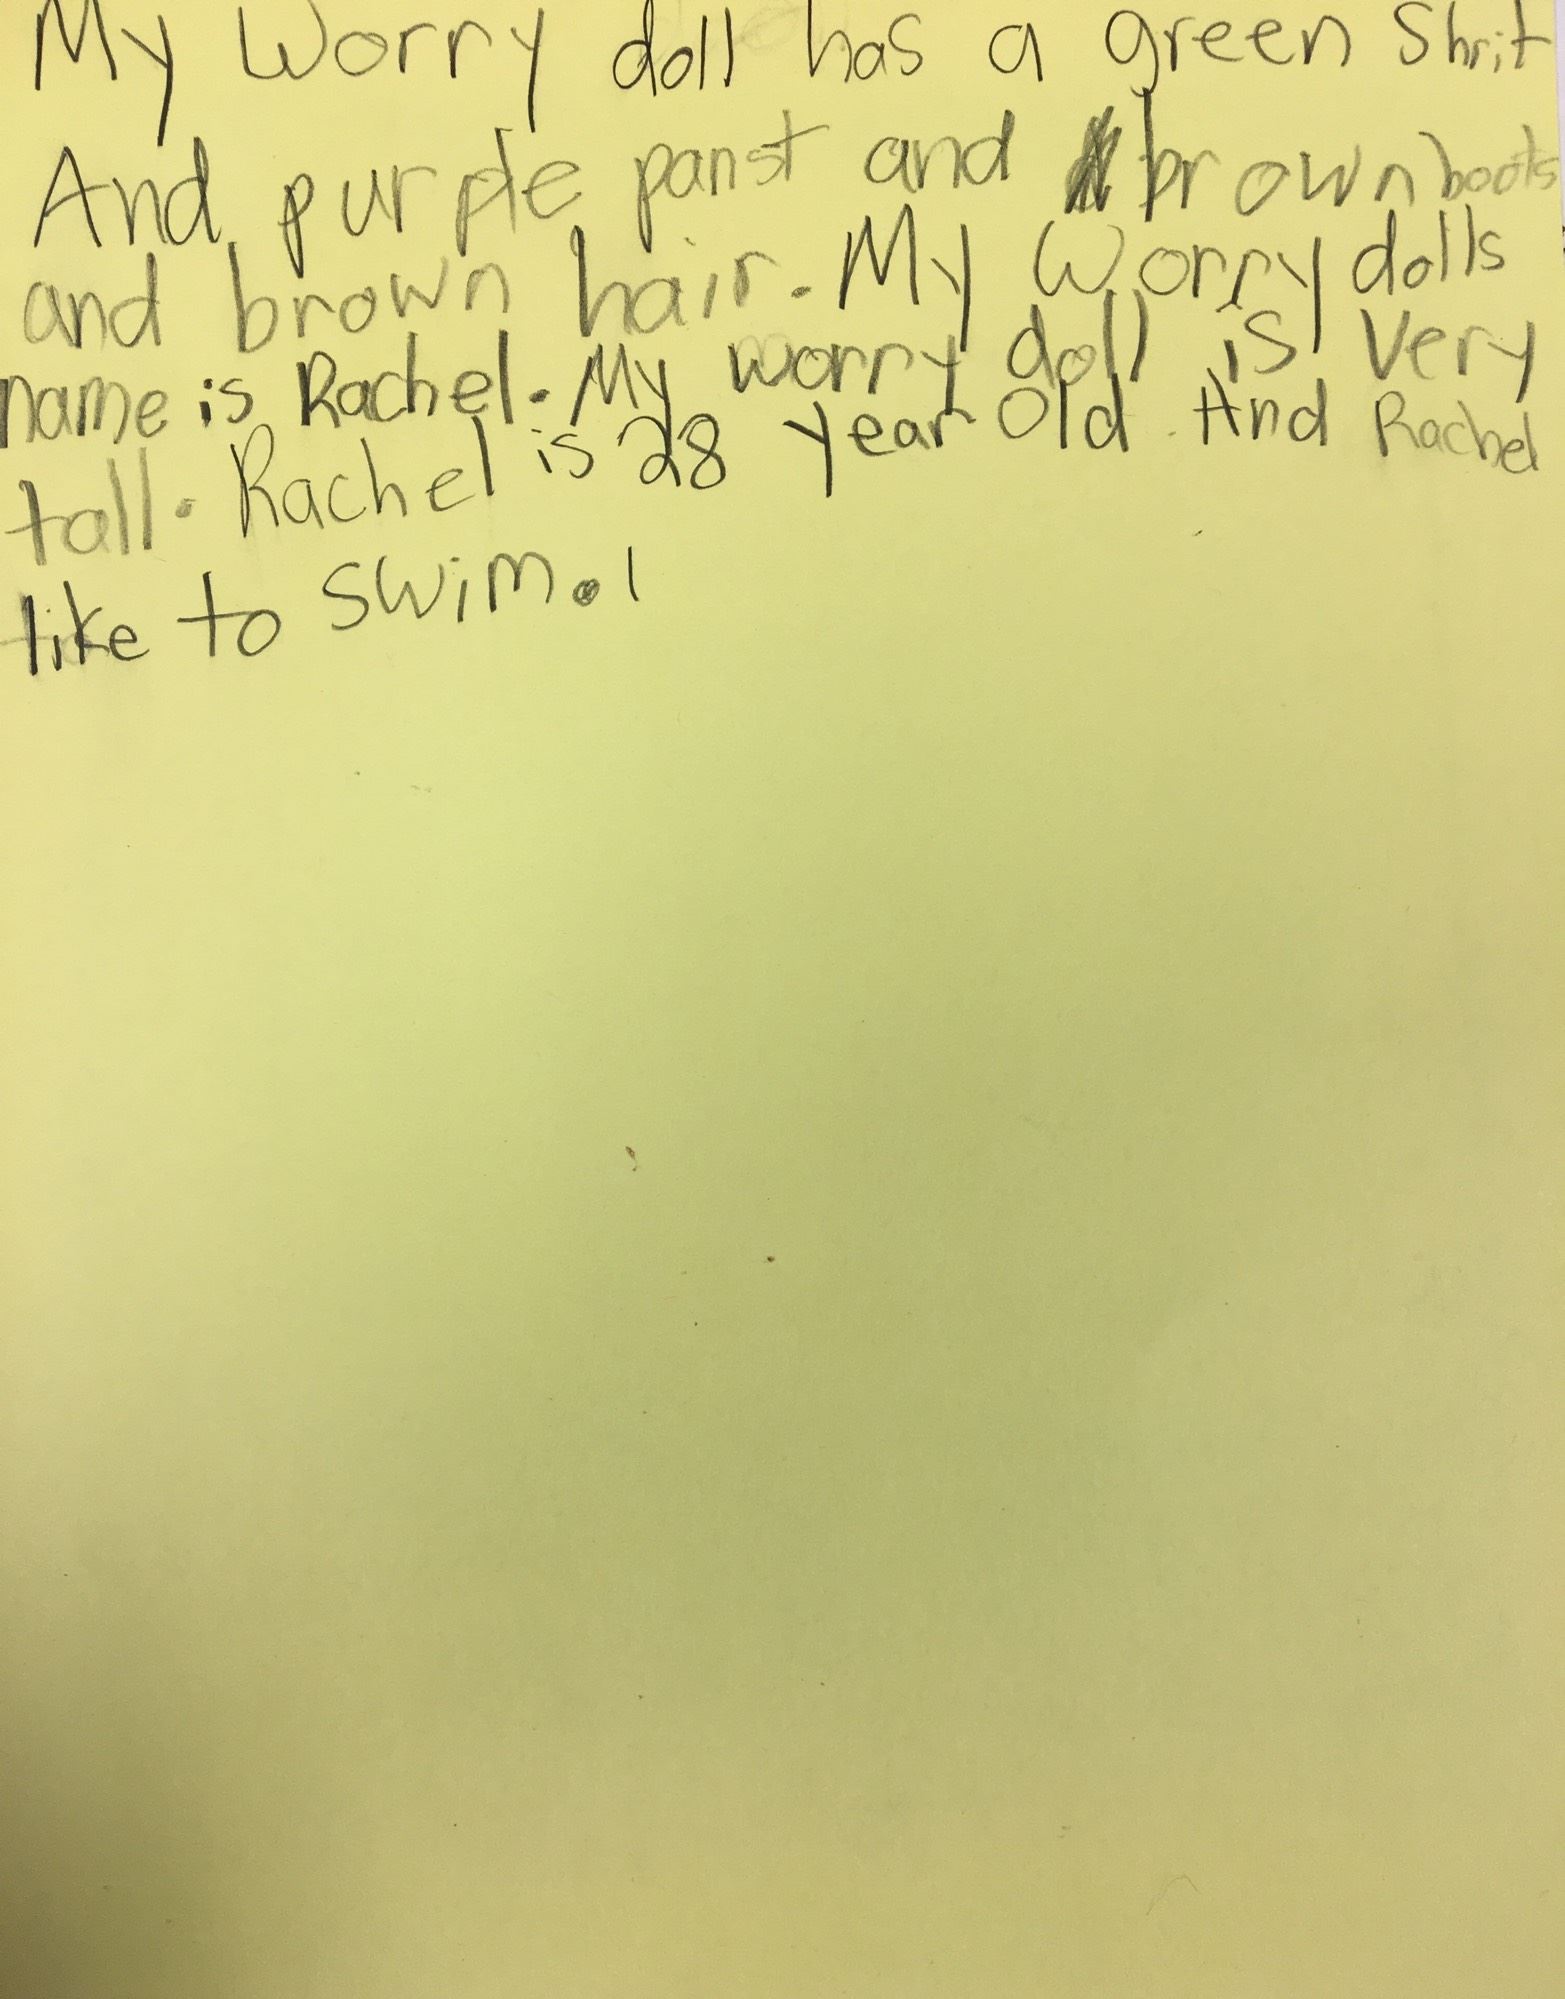 My Worry doll has a green Shrit
And purple panst and brown boots
and brown hair. My Worry dolls
name is Rachel. My worry doll is Very
tall. Rachel is 28 year Old. And Rachel
like to swim.